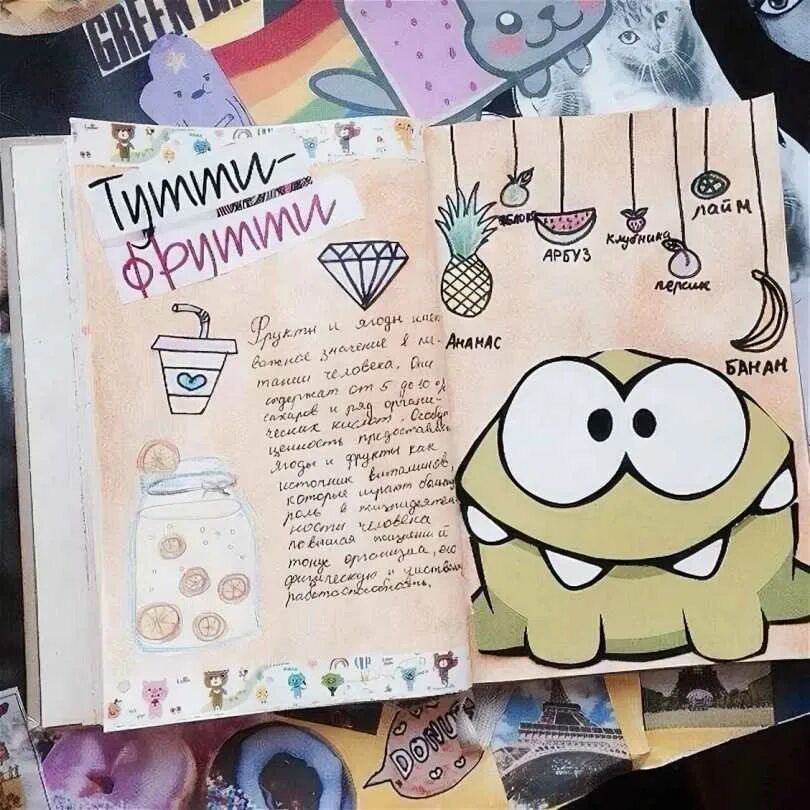 GREEN
Тутти-
фрутти
Фрукты и ягоды имеют
важное значение в пи-
тании человека. Они
содержат от 5 до 10 %
сахаров и ряд органи-
ческих кислот. Особую
ценность представляют
ягоды и фрукты как
источник витаминов,
которые играют большую
роль в жизнедеятель-
ности человека
повышая жизненный
тонус организма, его
физическую и умственную
работоспособность.
яблоко
АРБУЗ
клубника
лайм
персик
Ананас
БАНАН
DONUTS